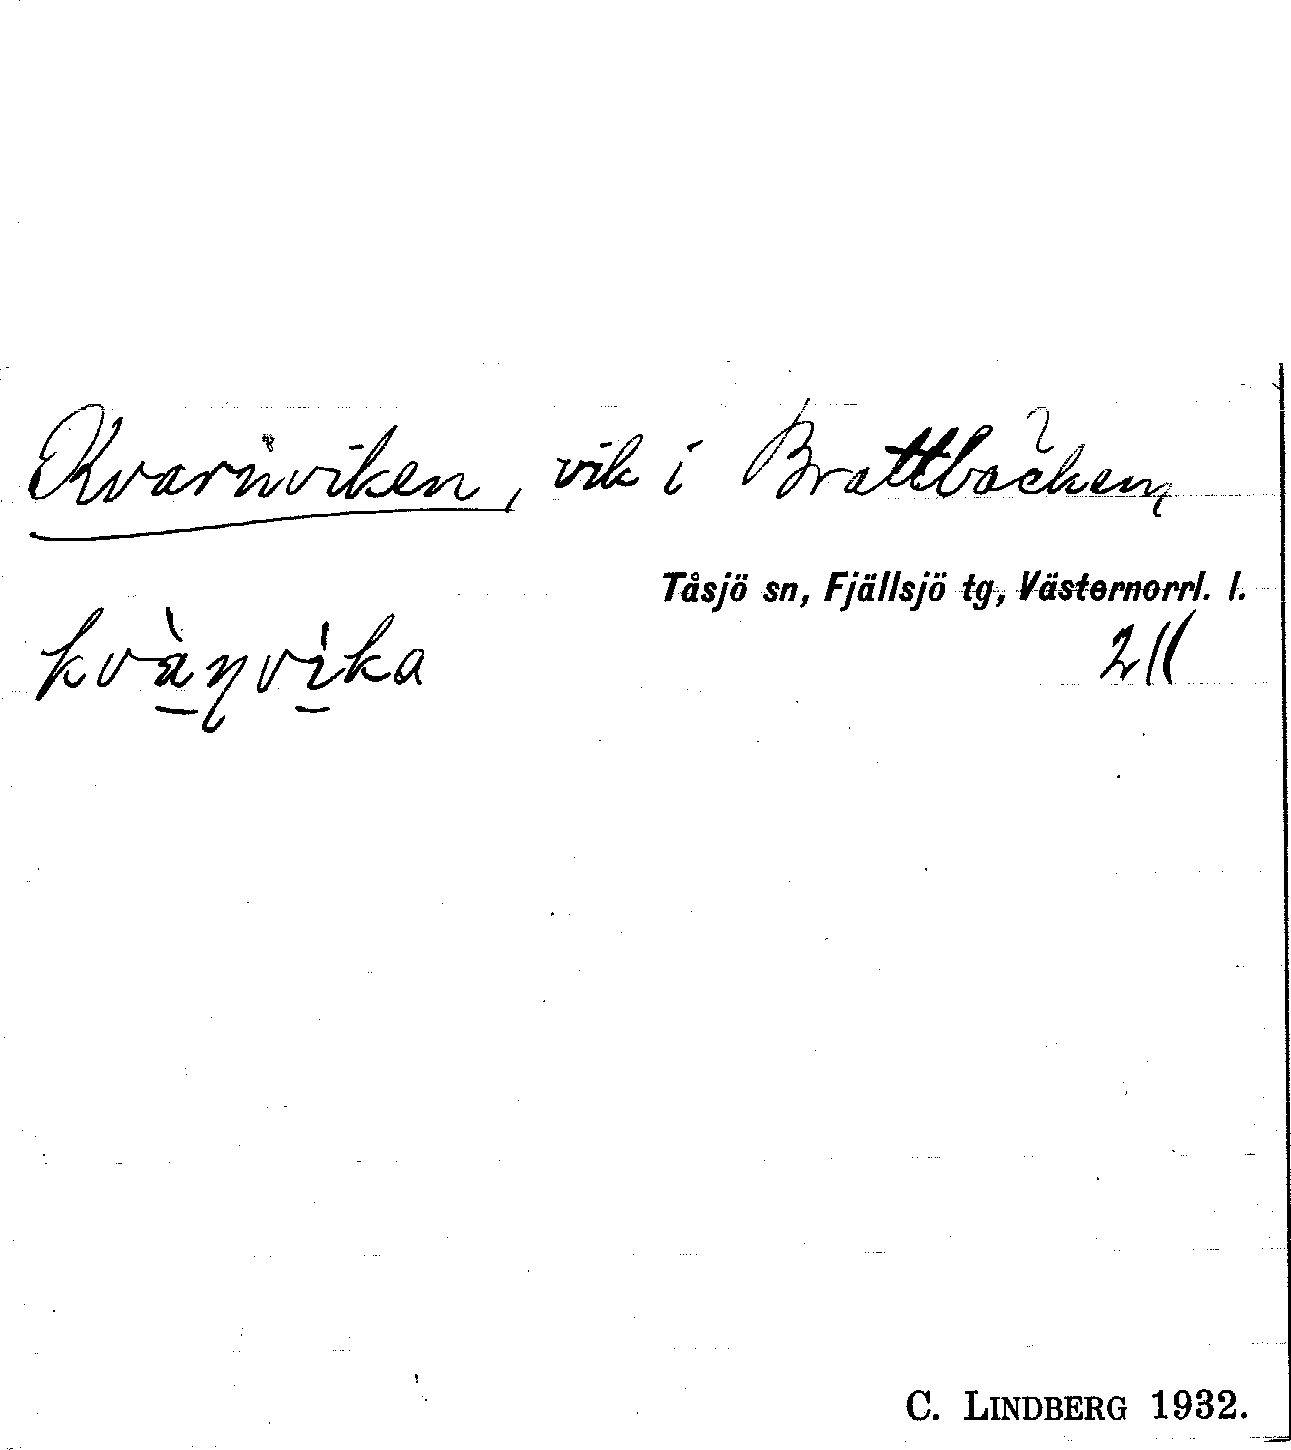 Kvarnviken, vik i Brattbäcken
Tåsjö sn, Fjällsjö tg, Västernorrl. l.
kvànvìka
C. LINDBERG 1932.